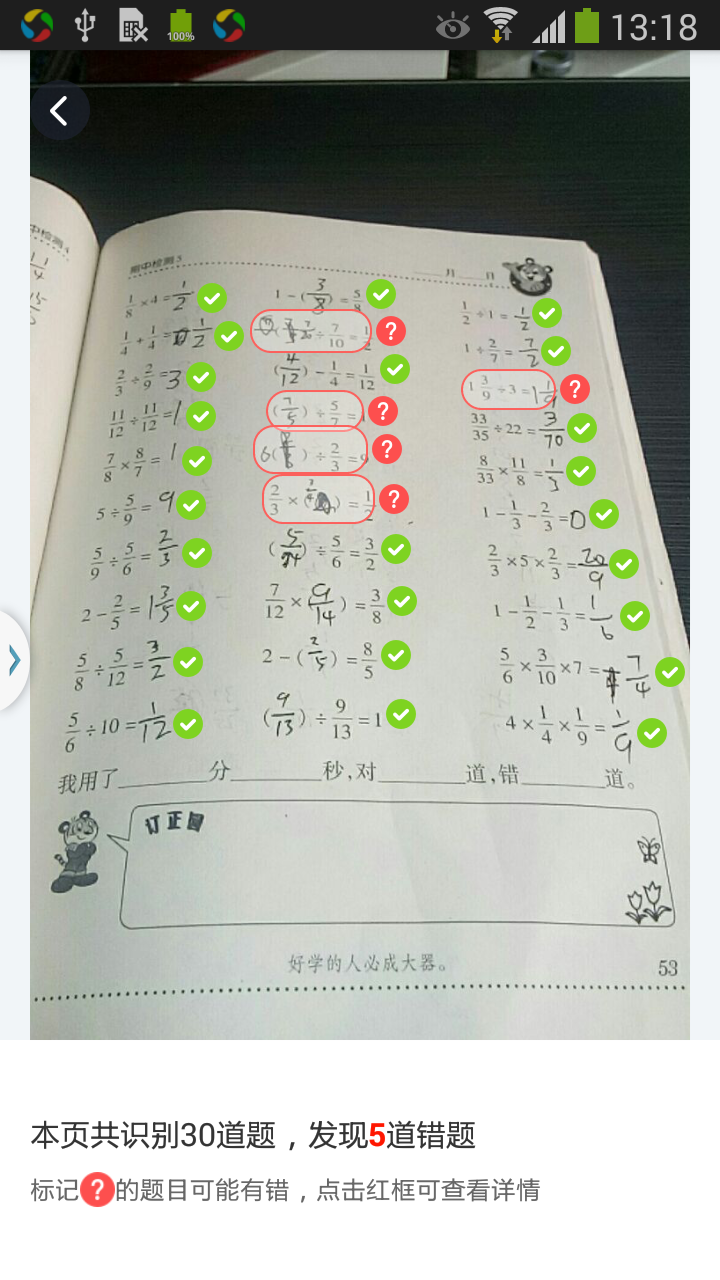 100% 13:18
期中检测5 ____月____日
1/8 × 4 = 1/2
1/4 + 1/4 = 1/2
2/3 ÷ 2/9 = 3
11/12 ÷ 11/12 = 1
7/8 × 8/7 = 1
5 ÷ 5/9 = 9
5/9 ÷ 5/6 = 2/3
2 - 2/5 = 1 3/5
5/8 ÷ 5/12 = 3/2
5/6 ÷ 10 = 1/12
1 - (3/8) = 5/8
÷ 7/10 = 1/2
(4/12) - 1/4 = 1/12
(7/5) ÷ 5/7 =
6( ) ÷ 2/3 = 9
2/3 × ( ) = 1/2
(5/14) ÷ 5/6 = 3/2
7/12 × (9/14) = 3/8
2 - (2/5) = 8/5
(9/13) ÷ 9/13 = 1
1/2 ÷ 1 = 1/2
1 ÷ 2/7 = 7/2
1 3/9 ÷ 3 = 1 1/9
33/35 ÷ 22 = 3/70
8/33 × 11/8 = 1/3
1 - 1/3 - 2/3 = 0
2/3 × 5 × 2/3 = 20/9
1 - 1/2 - 1/3 = 1/6
5/6 × 3/10 × 7 = 7/4
4 × 1/4 × 1/9 = 1/9
我用了______分______秒,对______道,错______道。
订正园
好学的人必成大器。
53
本页共识别30道题，发现5道错题
标记?的题目可能有错，点击红框可查看详情